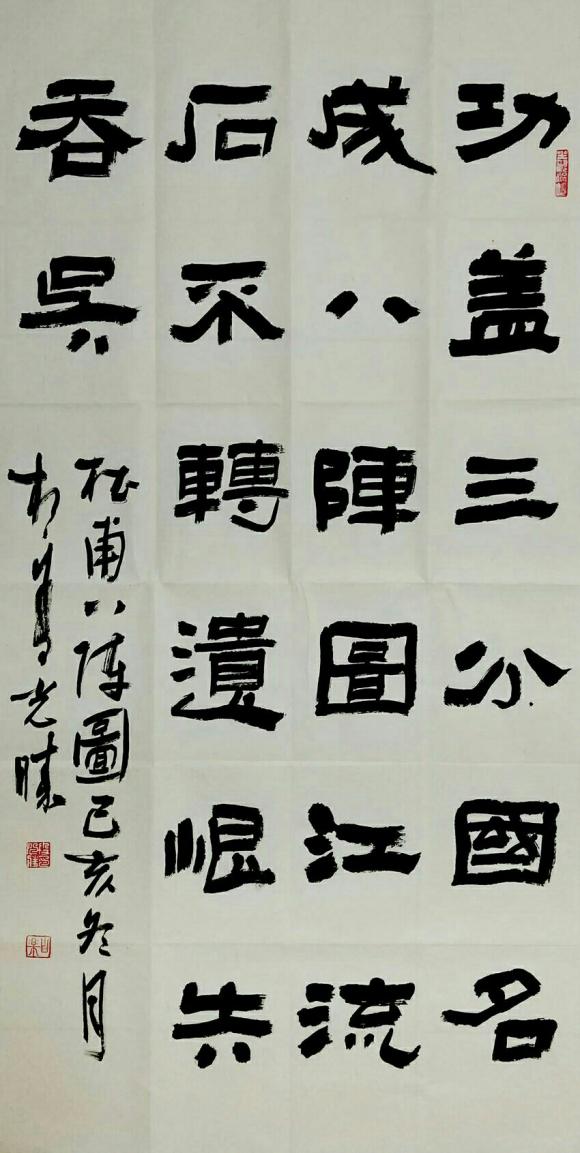 功盖三分國名
成八陣圖江流
石不轉遺恨失
吞吳
杜甫八陣圖己亥冬月
光